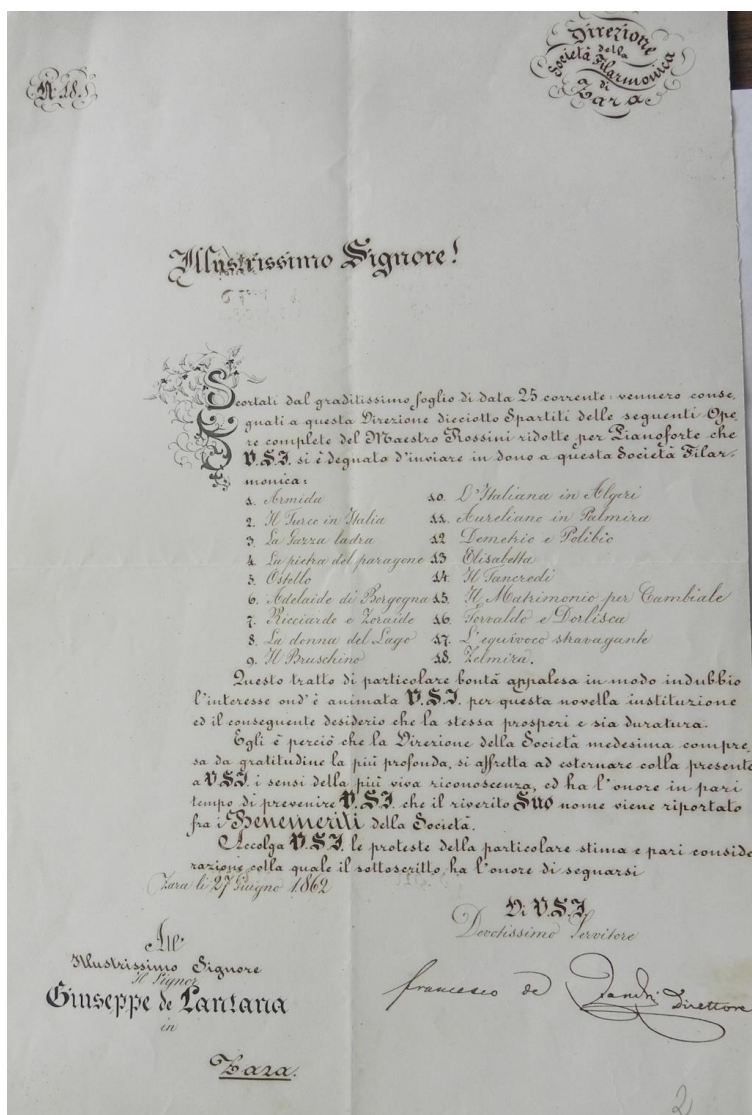 N. 18.
Direzione
della
Società Filarmonica
di
Zara
Illustrissimo Signore!
Scortati dal graditissimo foglio di data 25 corrente vennero conse,
gnati a questa Direzione dieciotto Spartiti delle seguenti Ope,
re complete del Maestro Rossini ridotte per Pianoforte che
V.S.I. si è degnato d'inviare in dono a questa Società Filar-
monica:
1. Armida
2. Il Turco in Italia
3. La Gazza ladra
4. La pietra del paragone
5. Otello
6. Adelaide di Borgogna
7. Ricciardo e Zoraide
8. La donna del Lago
9. Il Bruschino
10. L'Italiana in Algeri
11. Aureliano in Palmira
12 Demetrio e Polibio
13 Elisabetta
14. Il Tancredi
15. Il Matrimonio per Cambiale
16. Torvaldo e Dorlisca
17. L'equivoco stravagante
18. Zelmira.
Questo tratto di particolare bontà appalesa in modo indubbio
l'interesse ond'è animata V.S.I. per questa novella instituzione
ed il conseguente desiderio che la stessa prosperi e sia duratura.
Egli è perciò che la Direzione della Società medesima compre,
sa da gratitudine la più profonda, si affretta ad esternare colla presente
a V.S.I. i sensi della più viva riconoscenza, ed ha l'onore in pari
tempo di prevenire V.S.I. che il riverito Suo nome viene riportato
fra i Benemeriti della Società.
Accolga V.S.I. le proteste della particolare stima e pari conside
razione colla quale il sottoscritto, ha l'onore di segnarsi
Zara li 27 Giugno 1862
Di V.S.I.
Devotissimo Servitore
francesco de Direttore
All'
Illustrissimo Signore
Il Signor
Giuseppe de Lantana
in
Zara.
2